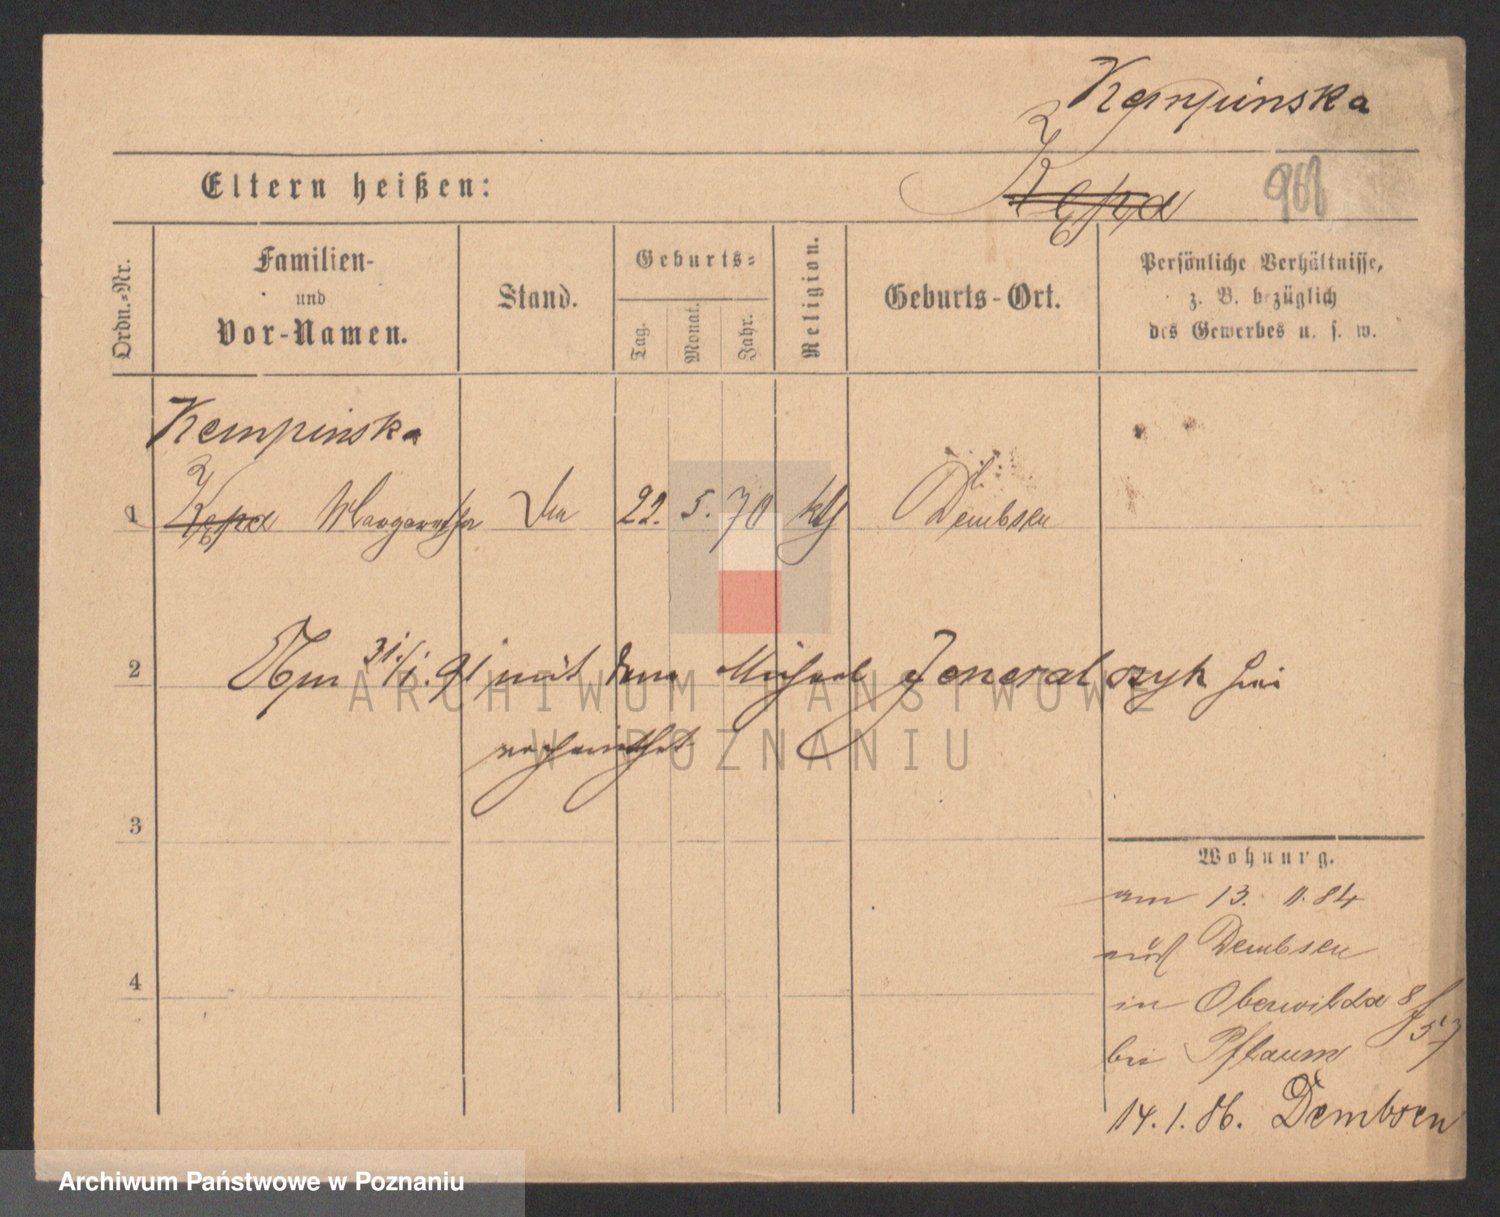 Kempinska
Kępa
968
Eltern heißen:
Ordn.-Nr.
Familien-
und
Vor-Namen.
Stand.
Geburts-
Tag.
Monat.
Jahr.
Religion.
Geburts-Ort.
Persönliche Verhältnisse,
z. B. bezüglich
des Gewerbes u. s. w.
Kempinska
1 Kępa Margaretha 22. 5. 70 kth Dembsen
2 Am 31/1. 91 mit dem Michael Jeneralczyk hier
verheirathet
3
4
Wohnung.
am 13. 11. 84
aus Dembsen
in Oberwilda 8
57
bei Pflaum
14. 1. 86. Dembsen
ARCHIWUM PAŃSTWOWE
W POZNANIU
Archiwum Państwowe w Poznaniu